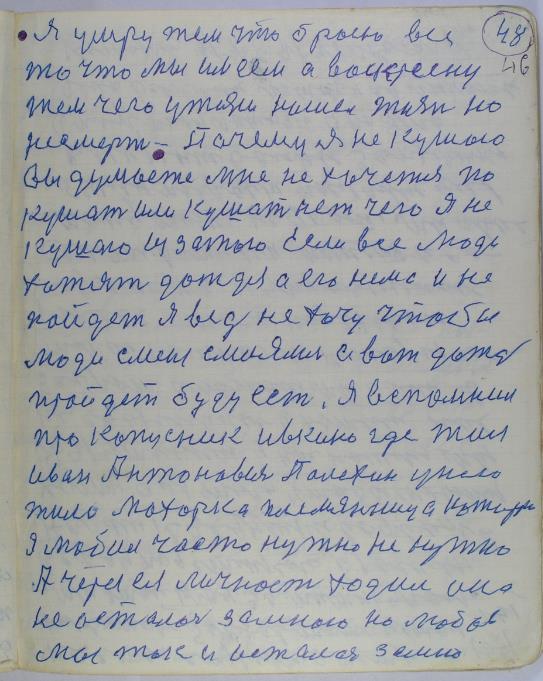 48
46
Я умру тем что брошу все
то что мы имеем а воскресну
тем чего утяни нашел жият но
несмерт – Почему я не кушаю
Вы думаете мне не хочется по
кушат или кушат нет чего Я не
кушаю из за того Если все люди
хотят дождя а его нема и не
пойдет Я вед не хочу чтобы
люди смея смеялись а вот дожд
пройдет буду ест. Я вспомнил
про Капусник ивкино где жил
Иван Антонович Палехин унего
жила Махорка племянница которую
Я любил часто нужно не нужно
А через ея личност ходил она
не осталася замною но любов
мы так и осталася замно